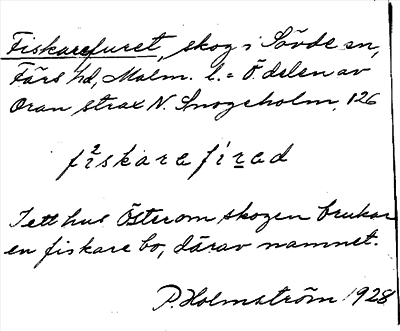 Fiskarefuret, skog i Sövde sn,
Färs hd, Malm. l. = Ö. delen av
Oran strax N. Snogeholm, 126
fiskarafirad
I ett hus Öster om skogen brukar
en fiskare bo, därav namnet.
P. Holmström 1928